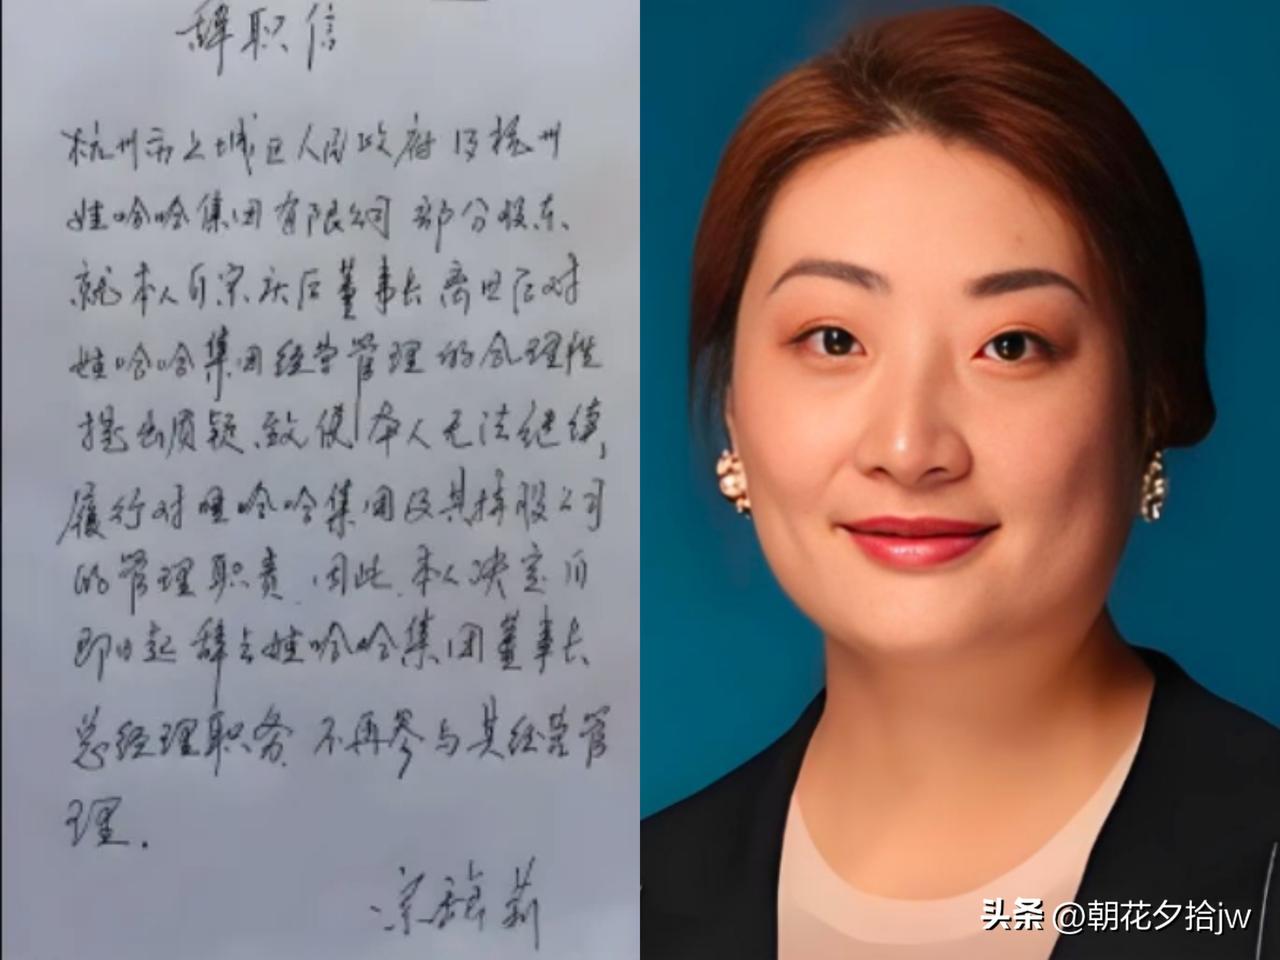 辞职信
杭州市上城区人民政府及杭州
娃哈哈集团有限公司部分股东、
就本人自宗庆后董事长离世后对
娃哈哈集团经营管理的合理性
提出质疑、致使本人无法继续,
履行对娃哈哈集团及其持股公司
的管理职责.因此.本人决定自
即日起辞去娃哈哈集团董事长
总经理职务.不再参与其经营管
理.
宗馥莉
头条 @朝花夕拾jw